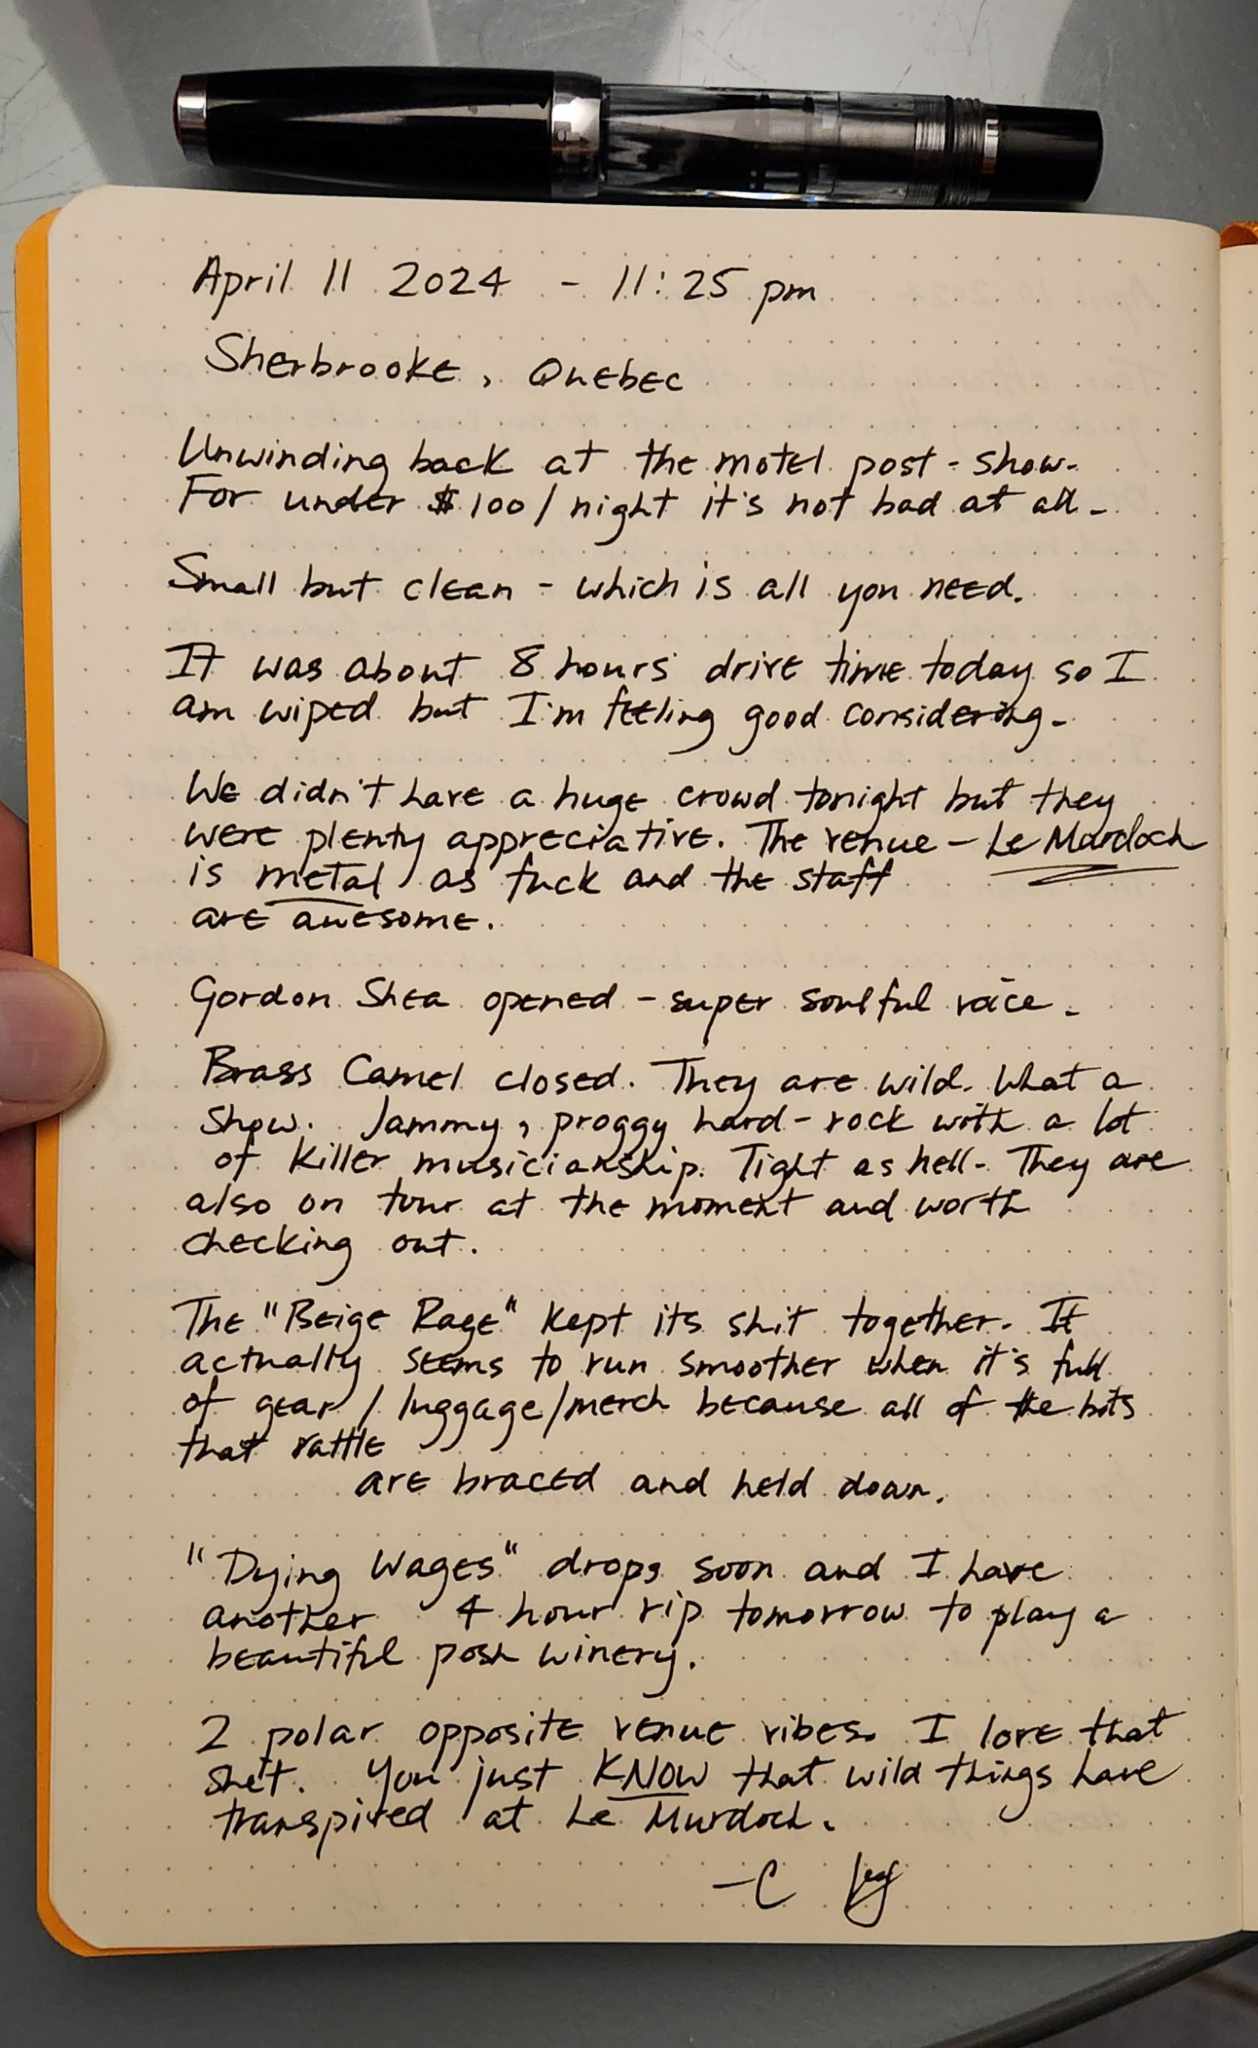 April 11 2024 - 11:25 pm
Sherbrooke, Quebec
Unwinding back at the motel post-show.
For under $100/night it's not bad at all.
Small but clean - which is all you need.
It was about 8 hours drive time today so I
am wiped but I'm feeling good considering.
We didn't have a huge crowd tonight but they
were plenty appreciative. The venue - Le Murdoch
is metal as fuck and the staff
are awesome.
Gordon Shea opened - super soulful voice.
Brass Camel closed. They are wild. What a
show. Jammy, proggy hard-rock with a lot
of killer musicianship. Tight as hell. They are
also on tour at the moment and worth
checking out.
The "Beige Rage" kept its shit together. It
actually seems to run smoother when it's full
of gear/luggage/merch because all of the bits
that rattle
are braced and held down.
"Dying Wages" drops soon and I have
another 4 hour rip tomorrow to play a
beautiful posh winery.
2 polar opposite venue vibes. I love that
shit. You just KNOW that wild things have
transpired at Le Murdoch.
-C